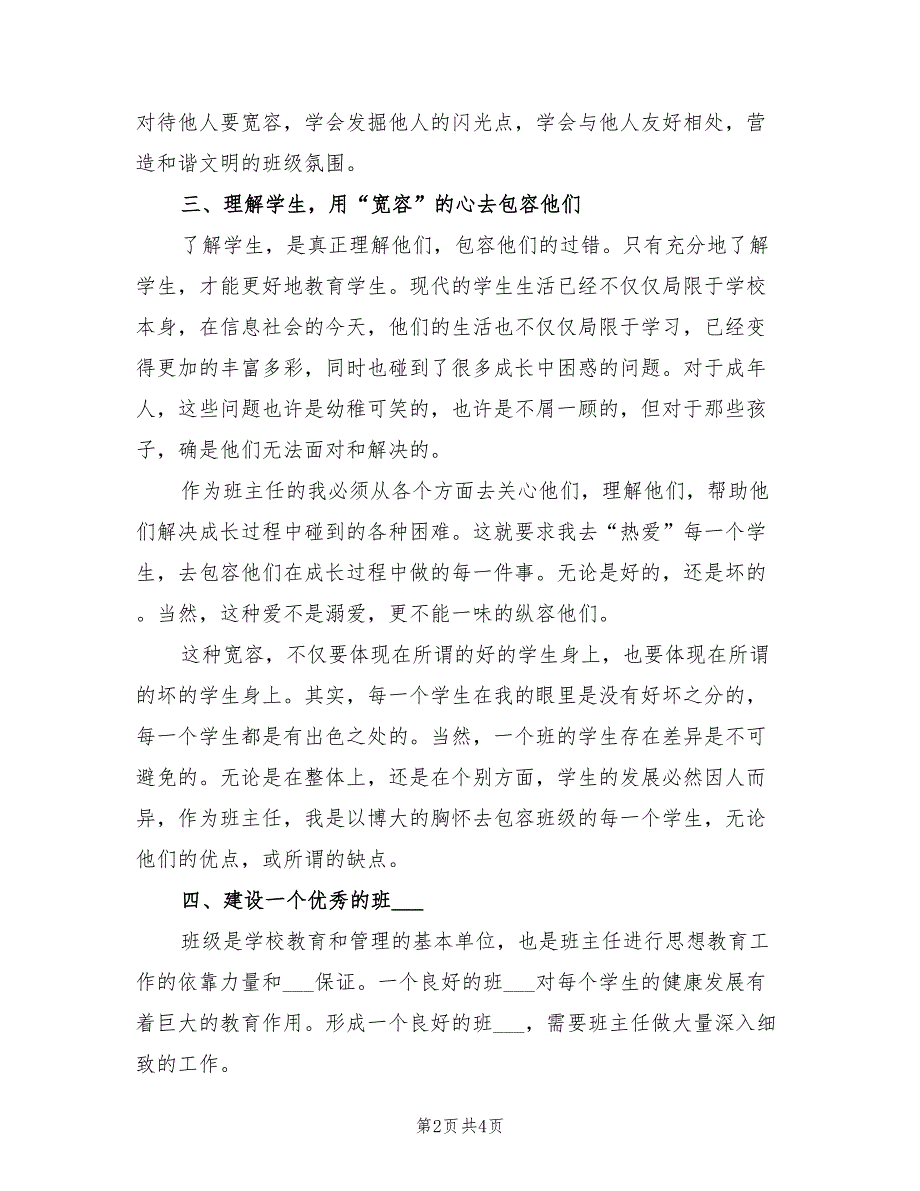 对待他人要宽容，学会发掘他人的闪光点，学会与他人友好相处，营
造和谐文明的班级氛围。
三、理解学生，用“宽容”的心去包容他们
了解学生，是真正理解他们，包容他们的过错。只有充分地了解
学生，才能更好地教育学生。现代的学生生活已经不仅仅局限于学校
本身，在信息社会的今天，他们的生活也不仅仅局限于学习，已经变
得更加的丰富多彩，同时也碰到了很多成长中困惑的问题。对于成年
人，这些问题也许是幼稚可笑的，也许是不屑一顾的，但对于那些孩
子，确是他们无法面对和解决的。
作为班主任的我必须从各个方面去关心他们，理解他们，帮助他
们解决成长过程中碰到的各种困难。这就要求我去“热爱”每一个学
生，去包容他们在成长过程中做的每一件事。无论是好的，还是坏的
。当然，这种爱不是溺爱，更不能一味的纵容他们。
这种宽容，不仅要体现在所谓的好的学生身上，也要体现在所谓
的坏的学生身上。其实，每一个学生在我的眼里是没有好坏之分的，
每一个学生都是有出色之处的。当然，一个班的学生存在差异是不可
避免的。无论是在整体上，还是在个别方面，学生的发展必然因人而
异，作为班主任，我是以博大的胸怀去包容班级的每一个学生，无论
他们的优点，或所谓的缺点。
四、建设一个优秀的班___
班级是学校教育和管理的基本单位，也是班主任进行思想教育工
作的依靠力量和___保证。一个良好的班___对每个学生的健康发展有
着巨大的教育作用。形成一个良好的班___，需要班主任做大量深入细
致的工作。
第2页共4页